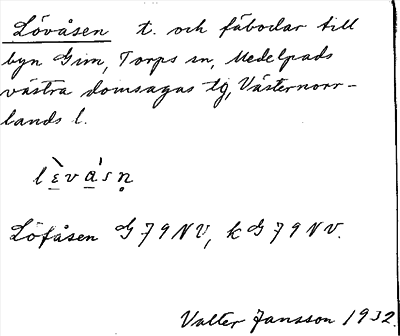 Lövåsen t. och fäbodar till
byn Gim, Torps sn, Medelpads
västra domsagas tg, Västernorr-
lands l.
lɛ̀vás n̥
Löfåsen G 79 NV, k G 79 NV.
Valter Jansson 1932.